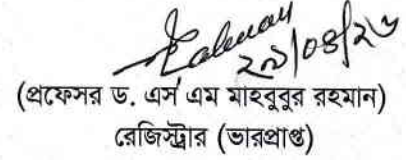 ২৯/০৪/২৬
(প্রফেসর ড. এস এম মাহবুবুর রহমান)
রেজিস্ট্রার (ভারপ্রাপ্ত)